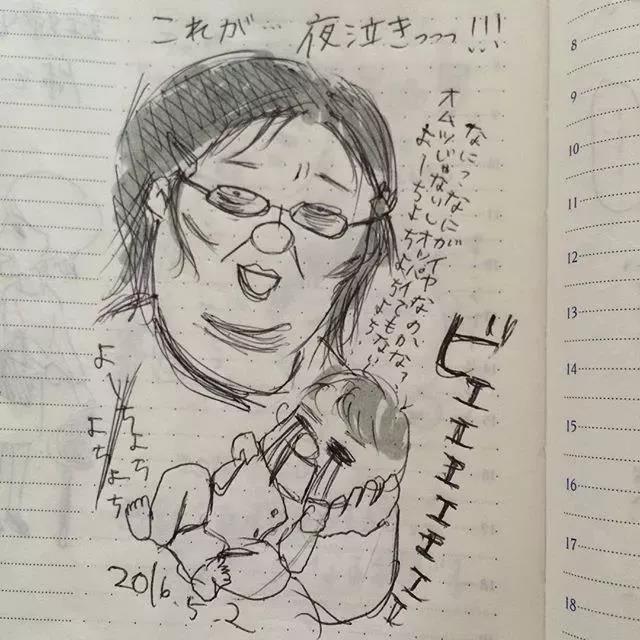 これが… 夜泣きっっっ!!!
なに?なにがイヤなのかな?
オムツじゃないし オッパイでもない
よーちよちよちよち
ビエエエエエエエ
よーちよち
よちよち
2016.5.2
8
9
10
11
12
13
14
15
16
17
18